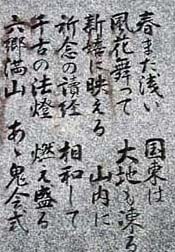 春また浅い 国東は
風花舞って 大地も凍る
に映える 山内に
祈念の讀経 相和して
千古の法燈 燃え盛る
六郷満山 あゝ鬼会式